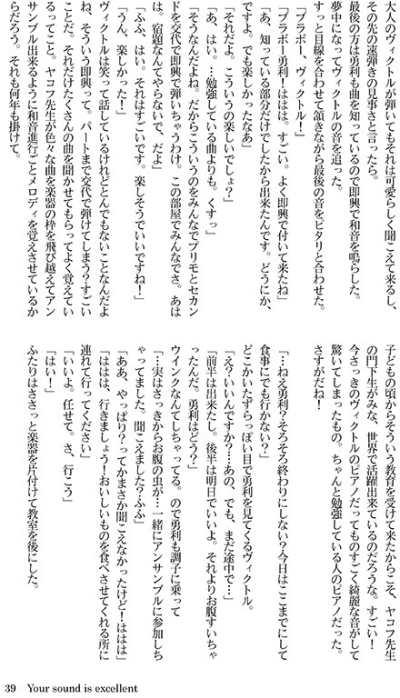 大人のヴィクトルが弾いてもそれは可愛らしく聞こえて来るし、
その先の速弾きの見事さと言ったら。
最後の方は勇利も曲を知っているので即興で和音を鳴らした。
夢中になってヴィクトルの音を追った。
すっと目線を合わせて頷きながら最後の音をピタリと合わせた。
「ブラボー、ヴィクトル！」
「ブラボー勇利！ははは。すごい。よく即興で付いて来たね」
「あ、知っている部分だけでしたから出来たんです。どうにか、
ですよ。でも楽しかったなあ」
「それだよ。こういうの楽しいでしょ？」
「あ、はい。…勉強している曲よりも。くすっ」
「そうなんだよね。だからこういうのをみんなでプリモとセカン
ドを交代で即興で弾いちゃうわけ。この部屋でみんなでさ。あは
は。宿題なんてやらないで、だよ」
「ふふ、はい。それはすごいです。楽しそうでいいですね！」
「うん、楽しかった！」
ヴィクトルは笑って話しているけれどとんでもないことなんだよ
ね、そういう即興って。パートまで交代で弾けてしまう？すごい
ことだ。それだけたくさんの曲を聞かせてもらってよく覚えてい
るってこと。ヤコフ先生が色々な曲を楽器の枠を飛び越えてアン
サンブル出来るように和音進行ごとメロディを覚えさせているか
らだろう。それも何年も掛けて。
子どもの頃からそういう教育を受けて来たからこそ、ヤコフ先生
の門下生がみな、世界で活躍出来ているのだろうな。すごい！
今さっきのヴィクトルのピアノだってものすごく綺麗な音がして
驚いてしまったもの。ちゃんと勉強している人のピアノだった。
さすがだね！
「…ねえ勇利？そろそろ終わりにしない？今日はここまでにして
食事にでも行かない？」
どこかいたずらっぽい目で勇利を見てくるヴィクトル。
「え？いいんですか？…あの、でも、まだ途中で…」
「前半は出来たし。後半は明日でいいよ。それよりお腹すいちゃ
ったんだ。勇利はどう？」
ウインクなんてしちゃってる。ので勇利も調子に乗って
「…実はさっきからお腹の虫が…一緒にアンサンブルに参加しち
ゃってました。聞こえました？ふふ」
「ああ、やっぱり？ってかまさか聞こえなかったけど！ははは」
「ははは、行きましょう！おいしいものを食べさせてくれる所に
連れて行ってください」
「いいよ。任せて。さ、行こう」
「はい！」
ふたりはささっと楽器を片付けて教室を後にした。
39 Your sound is excellent